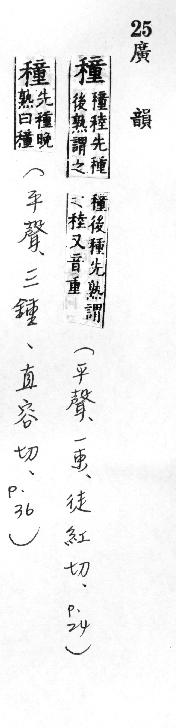 25 廣韻
穜 穜稑先種
後熟謂之
穜後種先熟謂
之稑又音重
(平聲、一東、徒紅切、p.24)
穜 先種晚
熟曰穜
(平聲、三鍾、直容切、p.36)